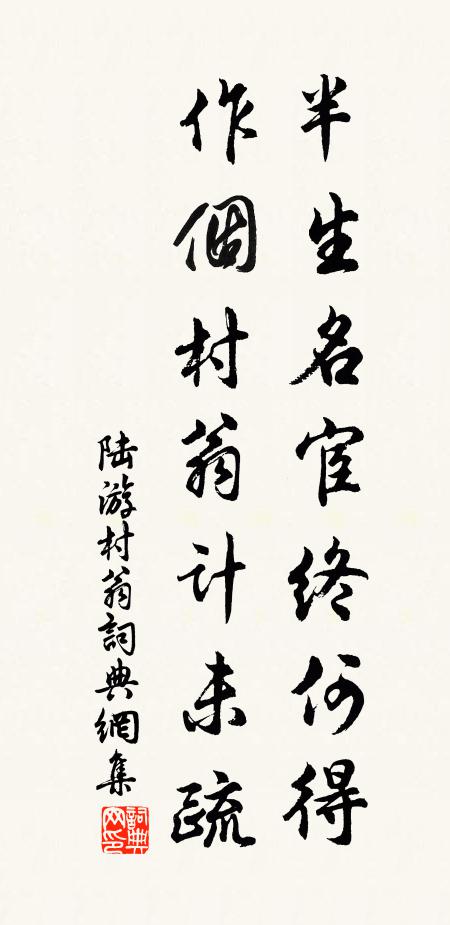 半生名宦终何得
作個村翁计未疏
陆游村翁詞典網集
詞典
网印